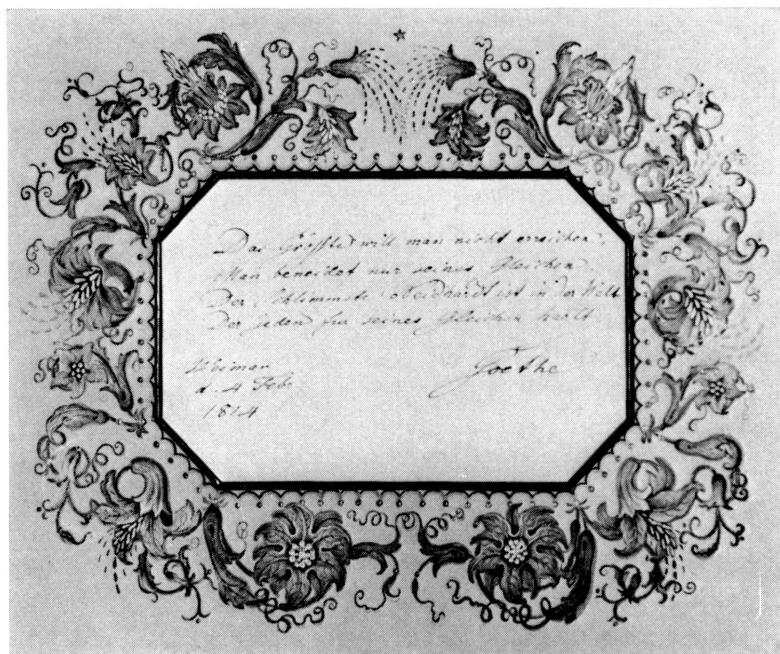 Das Größte will man nicht erreichen.
Man beneidet nur seines Gleichen
Der schlimmste Neidhardt ist in der Welt
Der jeden für seines Gleichen hält
Weimar
d. 4 Feb
1814
Goethe